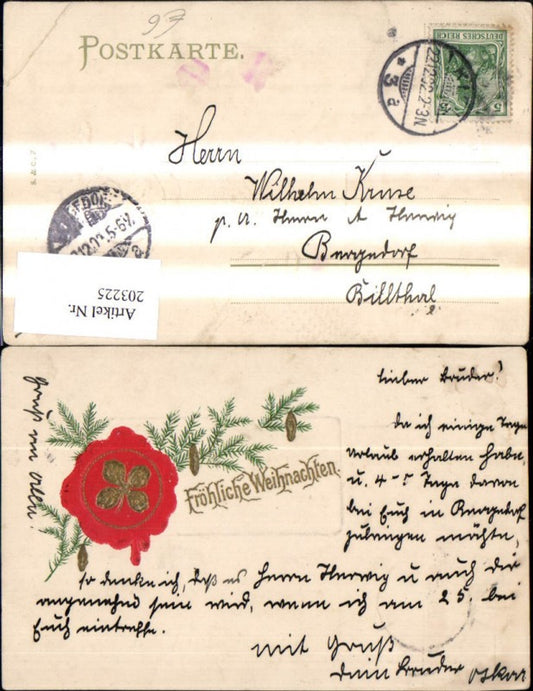 97
POSTKARTE.
DEUTSCHES REICH
5
22.12.02.2-3N
* 3a
Herrn
Wilhelm Kruse
p. A. Herrn A Herwig
Bergedorf
Billthal
2
5-6V.
Artikel Nr.
203225
Fröhliche Weihnachten.
Lieber Bruder!
Da ich einige Tage
Urlaub erhalten habe
u. 4-5 Tage davon
bei Euch in Bergedorf
zubringen möchte,
so denke ich, daß es Herrn Herwig u auch Dir
angenehm sein wird, wenn ich am 25. bei
Euch eintreffe.
Mit Gruß
Dein Bruder Oskar
Gruß an